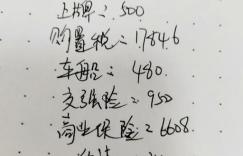 上牌：500
购置税：1784.6
车船：480.
交强险：950
商业保险：6608.